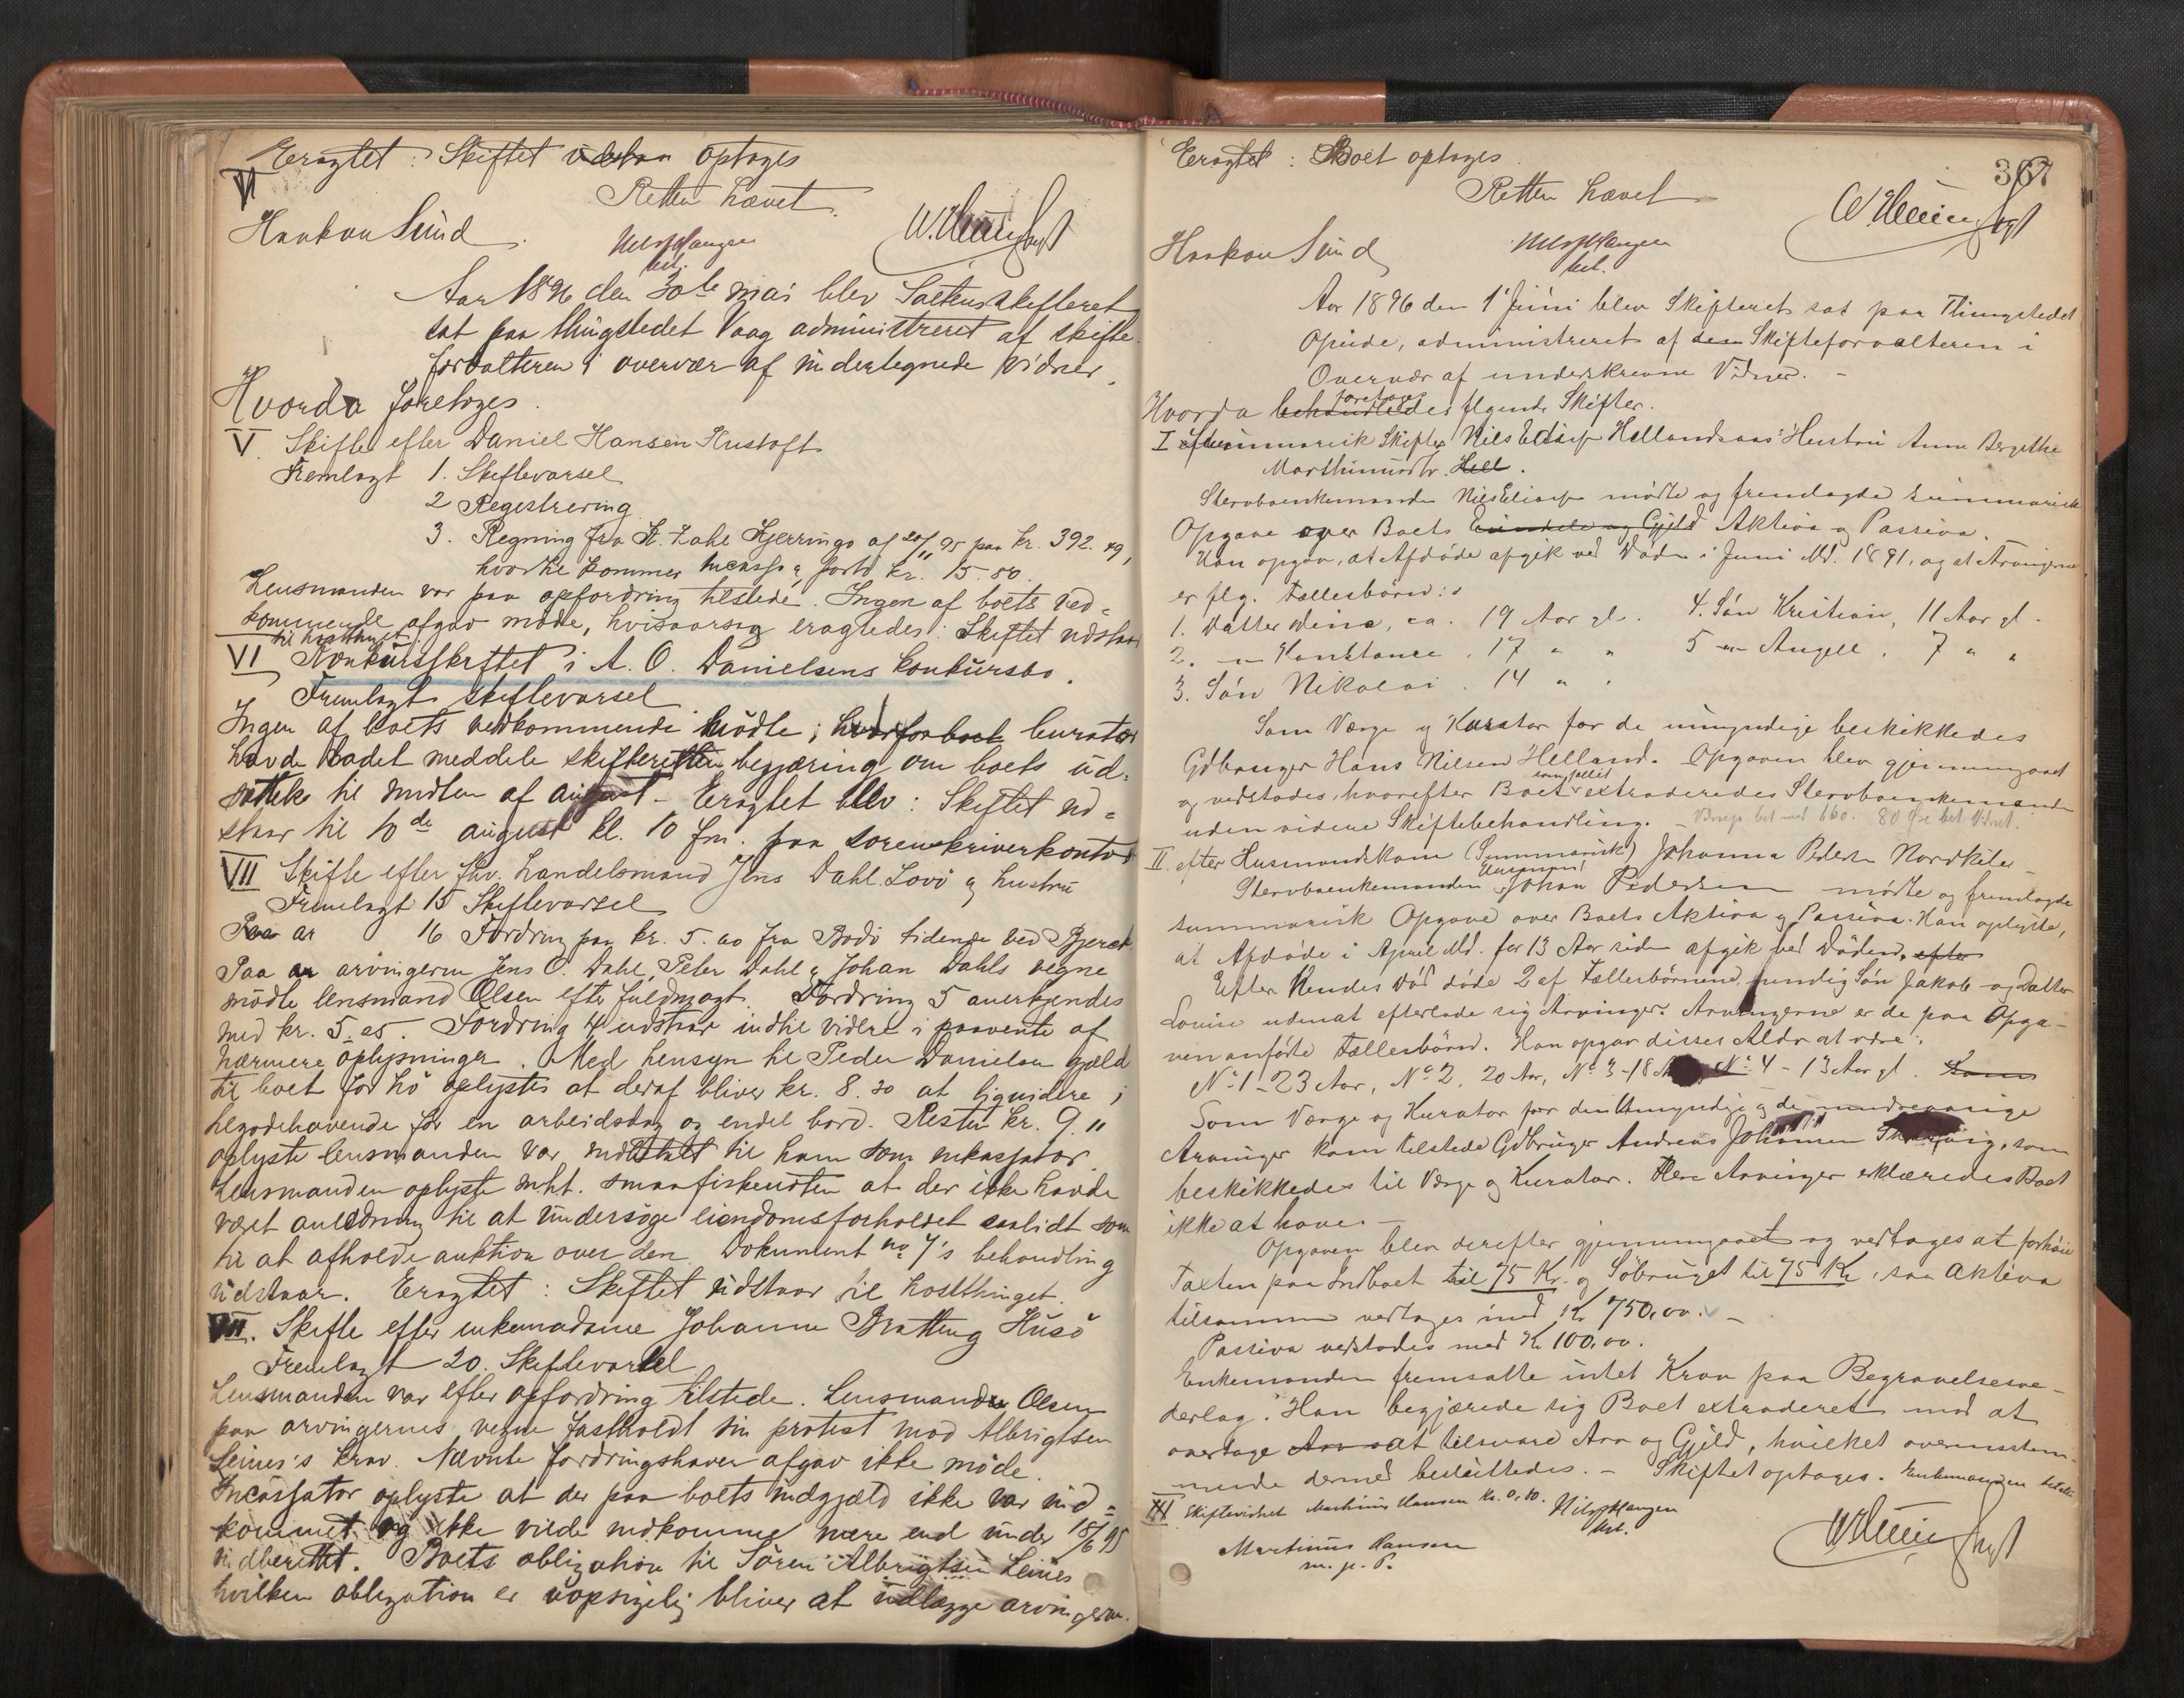 Eragtet: Skiftet optages
VI
Retten hævet.
Haakon Sund
W. 
Aar 1896 den 30te mai blev Saltens skifteret
sat paa thingstedet Vaag administreret af skifte-
forvalteren i overvær af undertegnede vidner.
Hvorda foretoges
V. Skifte efter Daniel Hansen
Fremlagt 1. Skiftevarsel
2 Registrering
3. Regning fra K. Zahl Kjerringø af 20/11 95 paa kr. 392.49,
hvortil kommer incasso & porto kr. 15.80.
Lensmanden var paa opfordring tilstede. Ingen af boets ved-
kommende afgav møde, hvisaarsag eragtedes: Skiftet udstaar
til høstthinget.
VI Konkursskiftet i A. O. Danielsens konkursbo.
Fremlagt skiftevarsel
Ingen af boets vedkommende mødte; hvorfor boets curator
havde ladet meddele skifteretten begjæring om boets ud-
sættelse til midten af august - Eragtet blev: Skiftet ud-
staar til 10de august kl. 10 fm. paa sorenskriverkontoret
VII Skifte efter fhv. handelsmand Jens Dahl Lovø & hustru
Fremlagt 15 Skiftevarsel
16 Fordring paa kr. 5.60 fra Bodø tidende ved
Paa arvingerne Jens O. Dahl, Peter Dahl & Johan Dahls vegne
mødte lensmand Olsen efter fuldmagt. Fordring 5 anerkjendes
med kr. 5.25. Fordring 4 udstaar indtil videre i paavente af
nærmere oplysninger. Med hensyn til Peder Danielsen gjæld
til boet for hø oplystes at deraf bliver kr. 8.30 at liquidere i
tilgodehavende for en arbeidsdag og endel bord. Resten kr. 9.
oplyste lensmanden var indbetalt til ham som inkassator.
Lensmanden oplyste mht. smaafiskenoten at der ikke havde
været anledning til at undersøge eiendomsforholdet saalidt som
til at afholde auktion over den. Dokument no 7's behandling
udstaar. Eragtet: Skiftet udstaar til høstthinget.
VIII. Skifte efter enkemadame Johanna Bratteng Husø
Fremlagt 20. Skiftevarsel
Lensmanden var efter opfordring tilstede. Lensmanden Olsen
paa arvingernes vegne fastholdt sin protest mod Albrigtsen
Leines's krav. Nævnte fordringshaver afgav ikke møde.
Incassator oplyste at der paa boets indgjæld ikke var ind-
kommet og ikke vilde indkomme mere end under 18/6 95
indberettet. Boets obligation til Søren Albrigtsen Leines
hvilken obligation er uopsigelig bliver at udlægge arvingerne.
Eragtet: Boet optages
367
Retten hævet
Haakon Sund
W. 
Aar 1896 den 1 Juni blev Skifteret sat paa Thingstedet
Opeide, administreret af Skifteforvalteren i
Overvær af underskrevne Vidner. -
Hvorda behandledes foretoges flgende Skifter.
I summarisk Skifte Nils Eliass. Hellandsaas' Hustru Anne Bergithe
Marthinusdtr. Hell.
Stervboenkemanden Nils Eliass. mødte og fremlagde summarisk
Opgave over Boets Eiendele og Gjeld Aktiva og Passiva.
Han opgav, at Afdøde afgik ved Døden i Juni Md. 1891, og at Arvingerne
er flg. Fællesbørn:
1. Datter Dina, ca. 19 Aar gl. 4. Søn Kristian, 11 Aar gl.
2. " Konstance, 17 " " 5 " Angell, 7 " "
3. Søn Nikolai, 14 " "
Som Værge og Kurator for de umyndige beskikkedes
Gdbruger Hans Nilsen Helland. Opgaven blev gjennemgaaet
og vedstodes, hvorefter Boet extraderedes Stervboenkemanden
uden videre Skiftebehandling. -
II. efter Husmandskone (Summarisk) Johanna Peders. Nordkil
Stervboenkemanden Johan Pedersen mødte og fremlagde
summarisk Opgave over Boets Aktiva og Passiva. Han oplyste,
at Afdøde i April Md. for 13 Aar siden afgik ved Døden, efter
Efter Hendes Død døde 2 af Fællesbørnene, myndig Søn Jakob og Datter
Lovise uden at efterlade sig Arvinger. Arvingerne er de paa Opga-
ven anførte Fællesbørn. Han opgav disses Alder at være:
No 1 - 23 Aar, No 2. 20 Aar, No 3 - 18 Aar, No 4 - 13 Aar gl. Som
Som Værge og Kurator for den Umyndige og de mindreaarige
Arvinger kom tilstede Gdbruger Andreas Johansen, som
beskikkedes til Værge og Kurator. Flere Arvinger erklæredes Boet
ikke at have. -
Opgaven blev derefter gjennemgaaet og vedtages at forhøie
Taxten paa Indboet til 75 Kr. og Søbruget til 75 Kr, saa Aktiva
tilsammen vedtages med Kr 750,00.
Passiva vedstodes med Kr 100,00.
Enkemanden fremsatte intet Krav paa Begravelsesve-
derlag. Han begjærede sig Boet extraderet mod at
overtage Arv at tilsvare Arv og Gjeld, hvilket overensstem-
mende dermed besluttedes. - Skiftet optages. Enkemanden
III Skiftevidnet Martinus Hansen Kr. 0,80.
Martinus Hansen
m. p. P.
W.